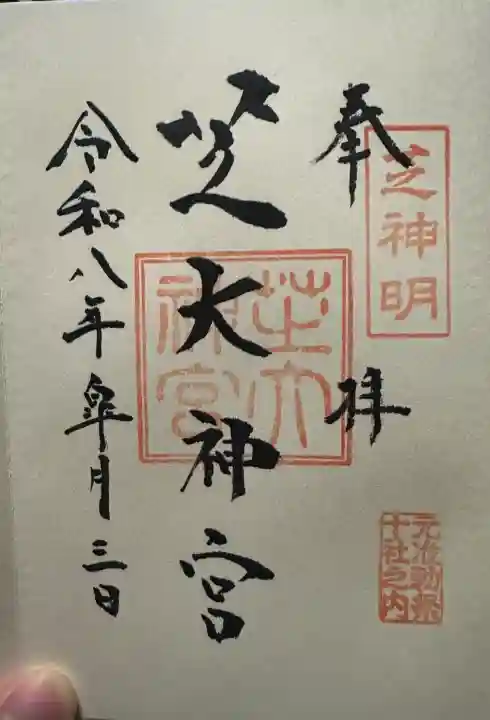 奉拝
芝神明
元准勅祭
十社之内
芝大神宮
芝大
神宮
令和八年皐月三日